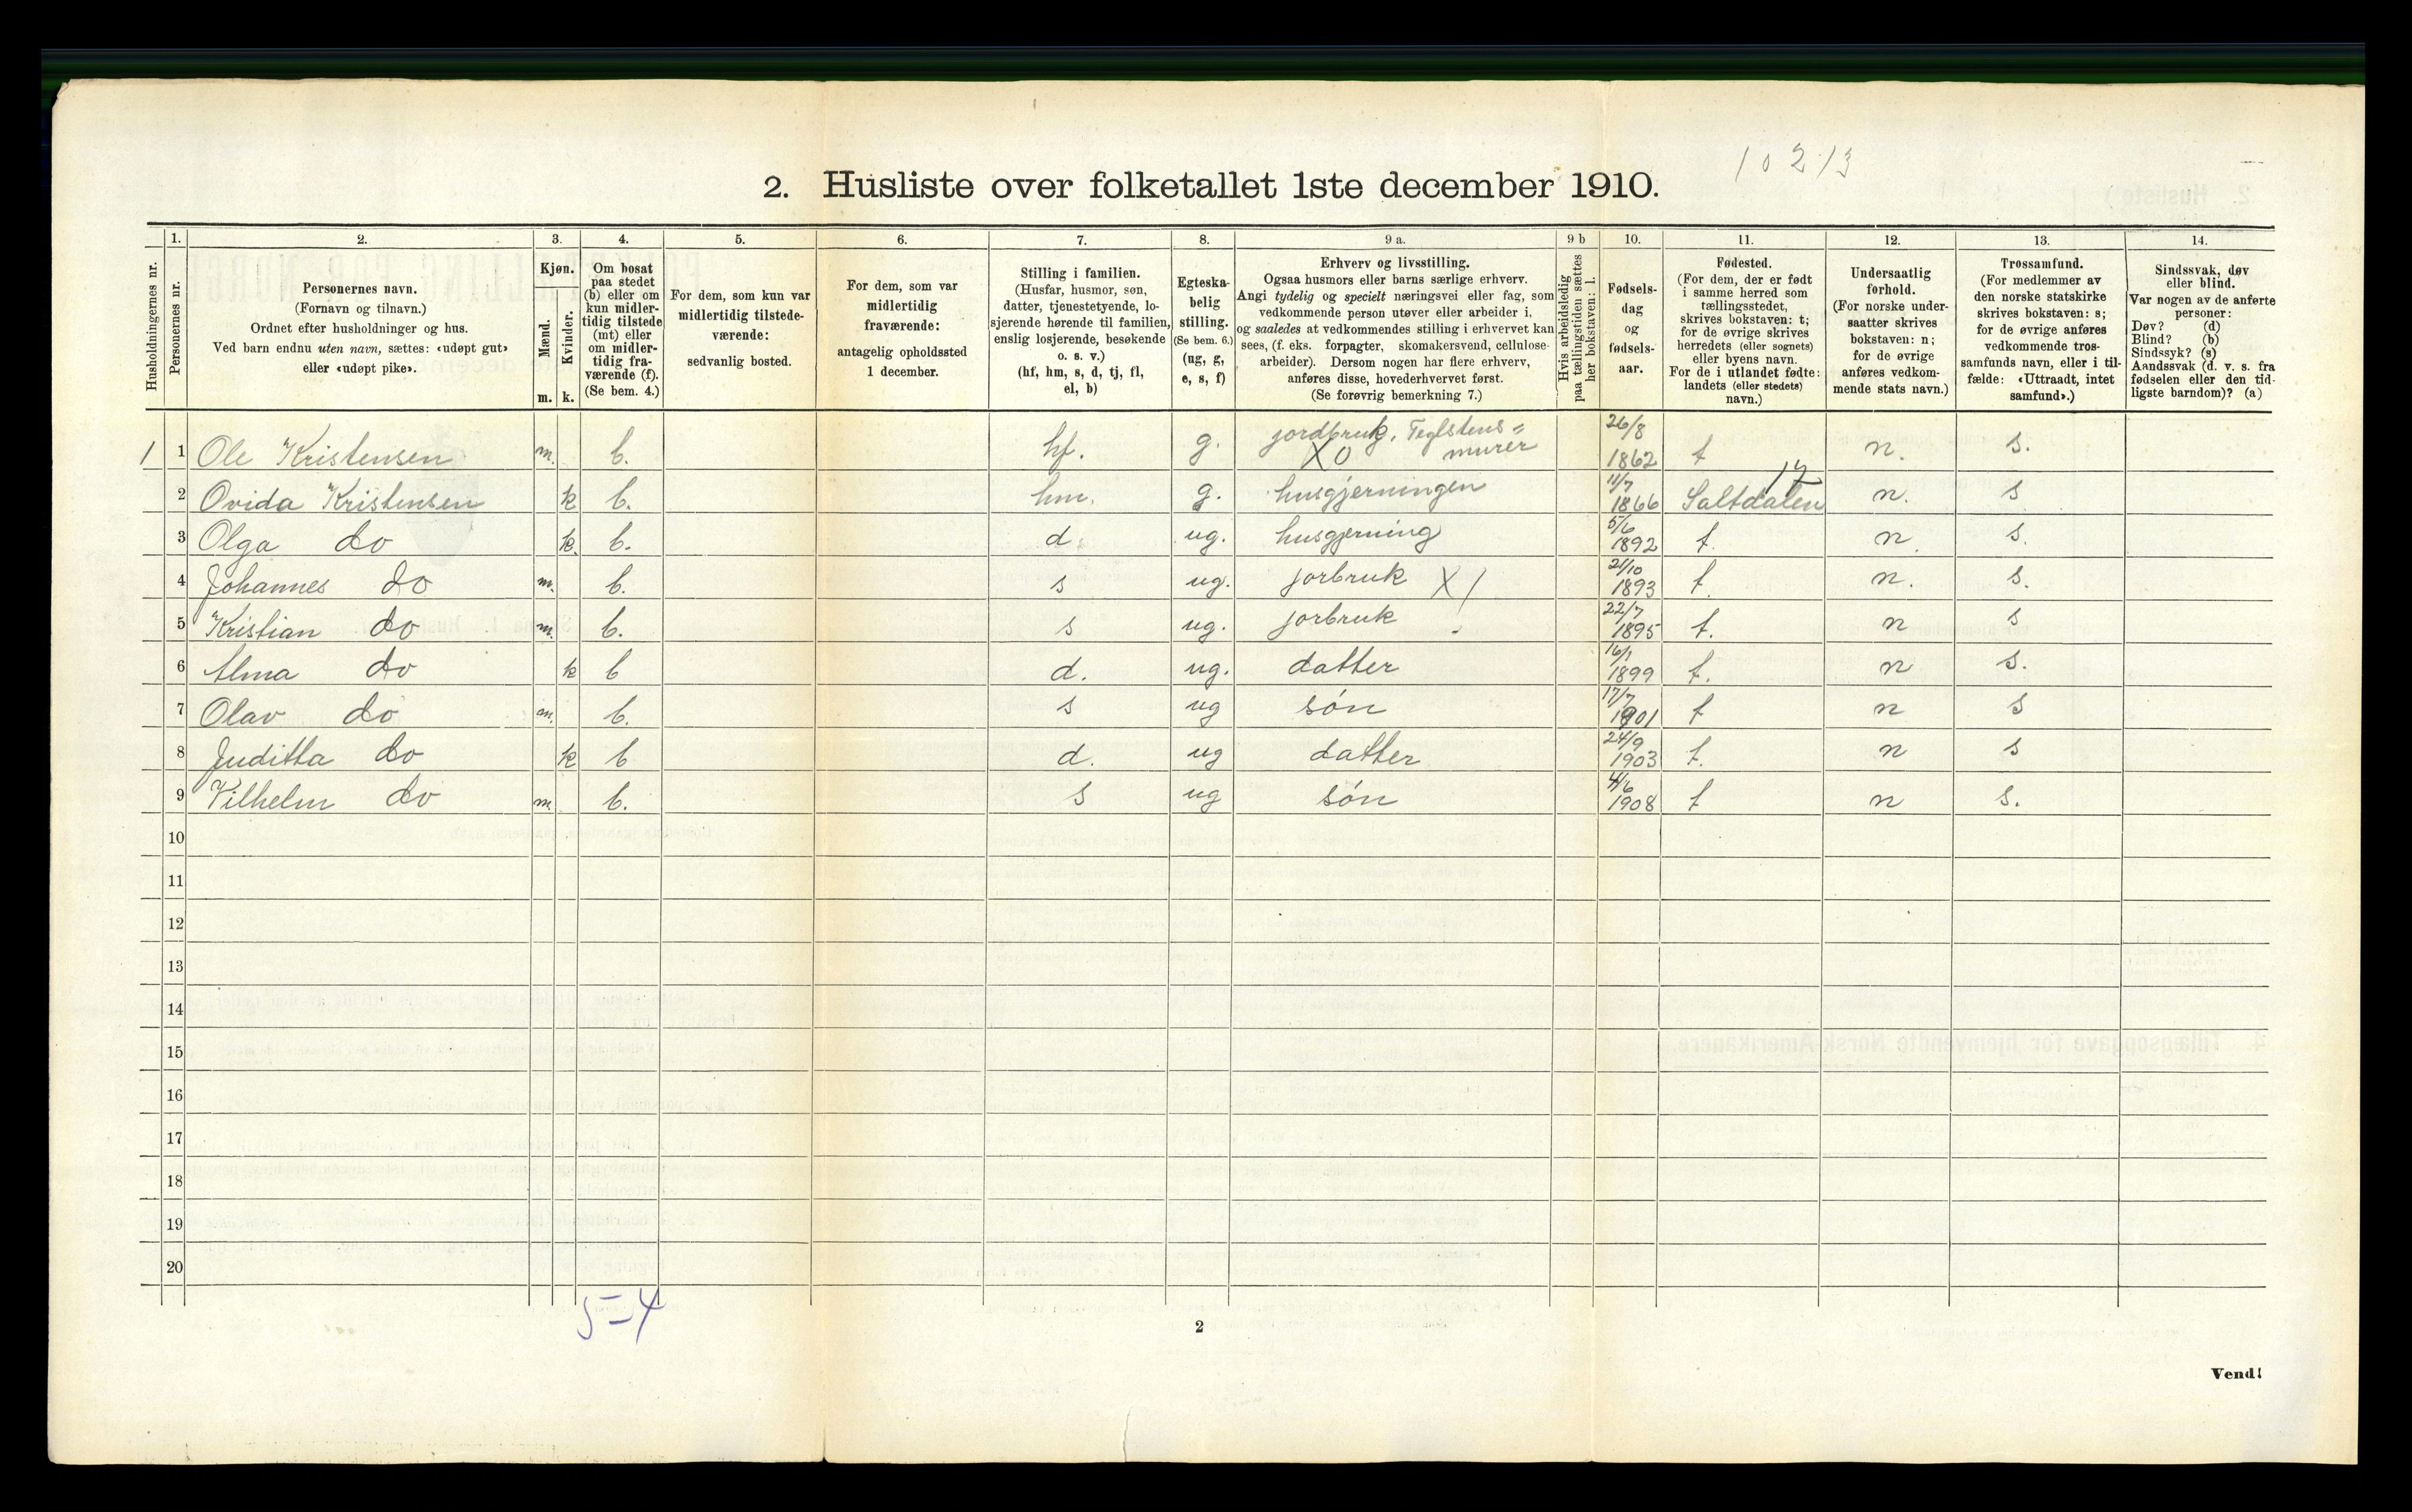 10213
2. Husliste over folketallet 1ste december 1910.
Husholdningernes nr.
1.
Personernes nr.
2.
Personernes navn.
(Fornavn og tilnavn.)
Ordnet efter husholdninger og hus.
Ved barn endnu uten navn, sættes: «udøpt gut»
eller «udøpt pike».
3.
Kjøn.
Mænd.
m.
Kvinder.
k.
4.
Om bosat
paa stedet
(b) eller om
kun midler-
tidig tilstede
(mt) eller
om midler-
tidig fra-
værende (f).
(Se bem. 4.)
5.
For dem, som kun var
midlertidig tilstede-
værende:
sedvanlig bosted.
6.
For dem, som var
midlertidig
fraværende:
antagelig opholdssted
1 december.
7.
Stilling i familien.
(Husfar, husmor, søn,
datter, tjenestetyende, lo-
sjerende hørende til familien,
enslig losjerende, besøkende
o. s. v.)
(hf, hm, s, d, tj, fl,
el, b)
8.
Egteska-
belig
stilling.
(Se bem. 6.)
(ug, g,
e, s, f)
9 a.
Erhverv og livsstilling.
Ogsaa husmors eller barns særlige erhverv.
Angi tydelig og specielt næringsvei eller fag, som
vedkommende person utøver eller arbeider i,
og saaledes at vedkommendes stilling i erhvervet kan
sees, (f. eks. forpagter, skomakersvend, cellulose-
arbeider). Dersom nogen har flere erhverv,
anføres disse, hovederhvervet først.
(Se forøvrig bemerkning 7.)
9 b
Hvis arbeidsledig
paa tællingstiden sættes
her bokstaven: l.
10.
Fødsels-
dag
og
fødsels-
aar.
11.
Fødested.
(For dem, der er født
i samme herred som
tællingsstedet,
skrives bokstaven: t;
for de øvrige skrives
herredets (eller sognets)
eller byens navn.
For de i utlandet fødte:
landets (eller stedets)
navn.)
12.
Undersaatlig
forhold.
(For norske under-
saatter skrives
bokstaven: n;
for de øvrige
anføres vedkom-
mende stats navn.)
13.
Trossamfund.
(For medlemmer av
den norske statskirke
skrives bokstaven: s;
for de øvrige anføres
vedkommende tros-
samfunds navn, eller i til-
fælde: «Uttraadt, intet
samfund».)
14.
Sindssvak, døv
eller blind.
Var nogen av de anførte
personer:
Døv? (d)
Blind? (b)
Sindssyk? (s)
Aandssvak (d. v. s. fra
fødselen eller den tid-
ligste barndom)? (a)
1 1 Ole Kristensen m. b. hf. g. jordbruk, Teglstens= murer X0 26/8 1862 t n. s.
2 Ovida Kristensen k b. hm. g. husgjerningen 11/7 1866 Saltdalen 17 n. s
3 Olga do k. b. d. ug. husgjerning 5/6 1892 t. n. s.
4 Johannes do m. b. s ug. jorbruk X1 21/10 1893 t. n. s.
5 Kristian do m. b. s ug. jorbruk 22/7 1895 t. n s
6 Alma do k b d. ug. datter 16/1 1899 t. n s.
7 Olav do m. b. s ug søn 17/7 1901 t n s
8 Juditta do k b d. ug datter 24/9 1903 t. n s
9 Vilhelm do m. b. s ug søn 4/6 1908 t n s.
10
11
12
13
14
15
16
17
18
19
20
5-4
2
Vend!